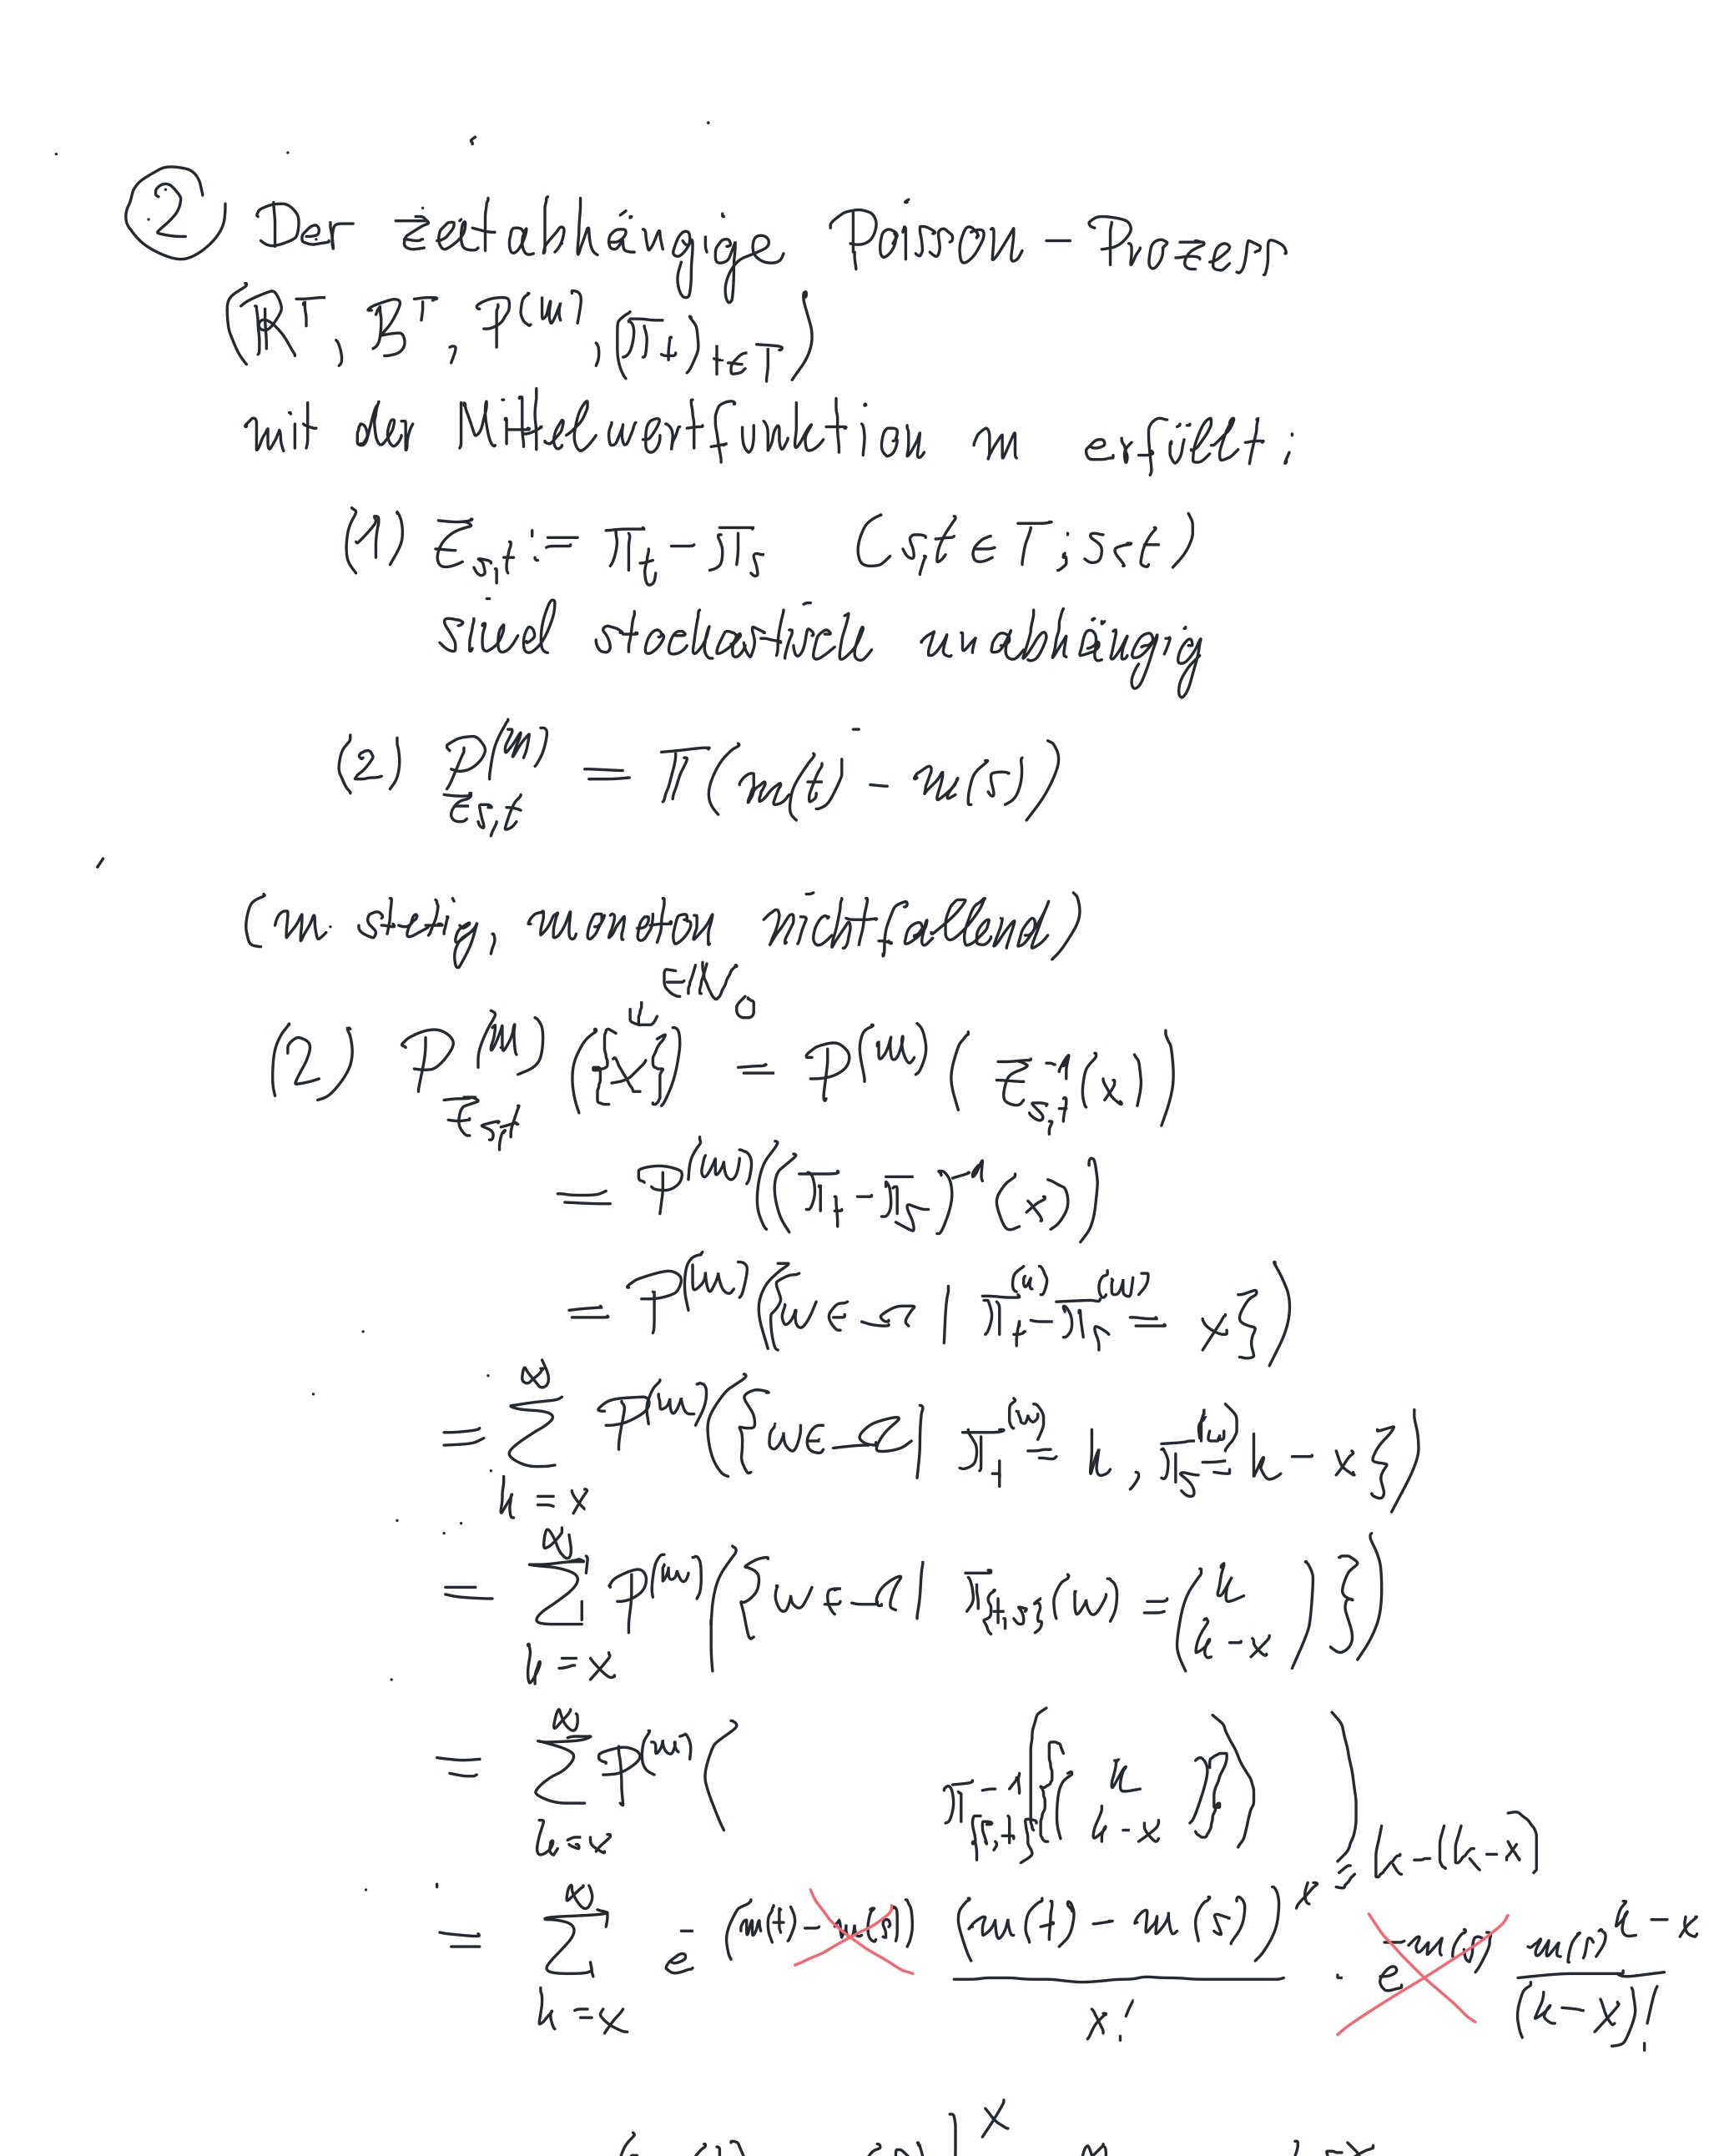 ② Der zeitabhängige Poisson-Prozess
(ℝ^T, B^T, P^(m), (π_t)_{t∈T})
mit der Mittelwertfunktion m erfüllt:
(1) Ξ_{s,t} := π_t − π_s (s,t ∈ T; s<t)
sind stochastisch unabhängig
(2) P^(m)_{Ξ_{s,t}} = π(m(t) − m(s))
(m stetig, monoton nichtfallend)
∈ℕ₀
(2) P^(m)_{Ξ_{s,t}} ({x}) = P^(m) (Ξ_{s,t}^{-1}(x))
= P^(m)((π_t − π_s)^{-1}(x))
= P^(m)({ω∈Ω | π_t^(ω) − π_s^(ω) = x})
= ∑_{k=x}^∞ P^(m)({ω∈Ω | π_t^(ω) = k, π_s^(ω) = k − x})
= ∑_{k=x}^∞ P^(m)({ω∈Ω | π_{t,s}(ω) = (k, k−x)})
= ∑_{k=x}^∞ P^(m)( π^{-1}_{{s,t}} ({(k, k−x)}) )
= ∑_{k=x}^∞ e^{−(m(t)−m(s))} (m(t) − m(s))^{x = k−(k−x)} / x! · e^{−m(s)} m(s)^{k−x} / (k−x)!